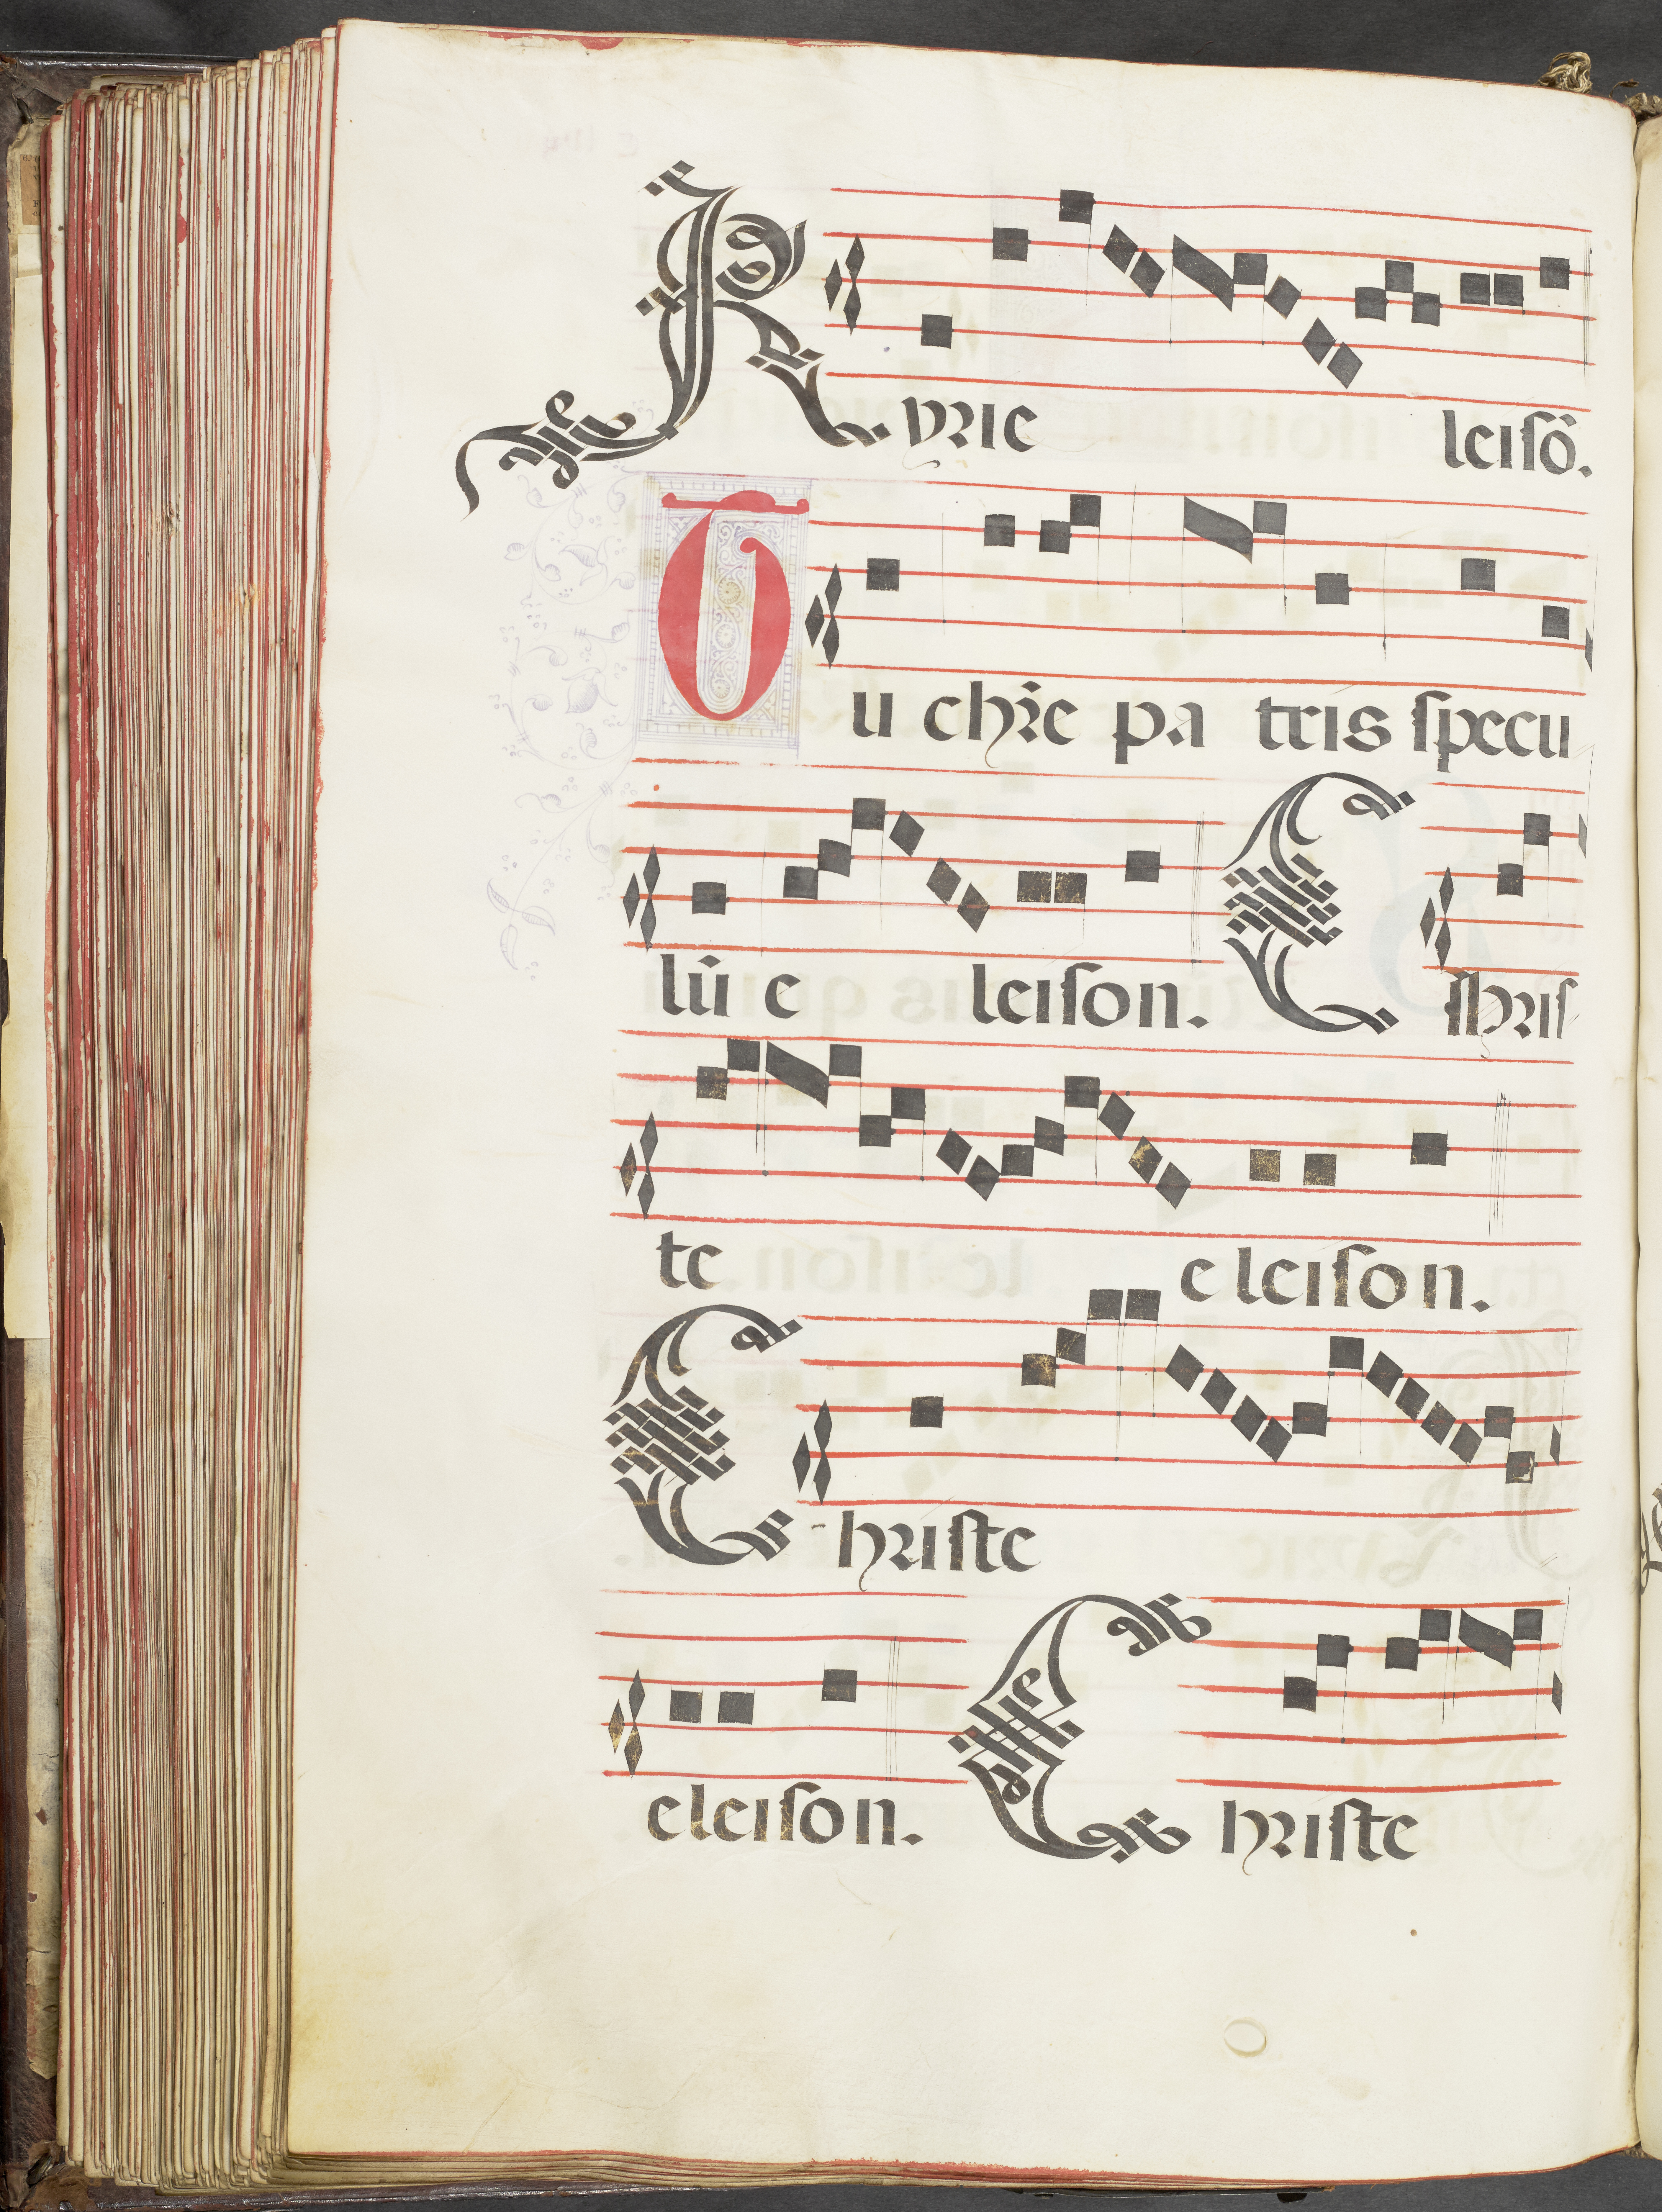 Kyrie leiſō.
Tu chr̄e pa tris ſpecu
lū e leiſon. Chriſ
te e leiſon.
Chriſte
eleiſon. Chriſte